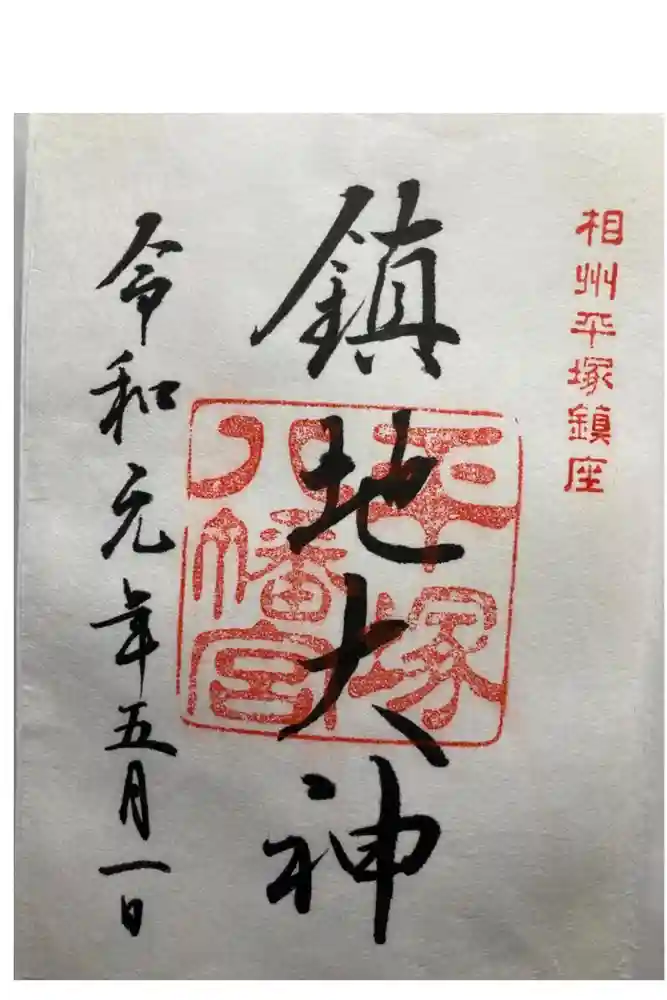 相州平塚鎮座
鎮地大神
平塚
八幡宮
令和元年五月一日